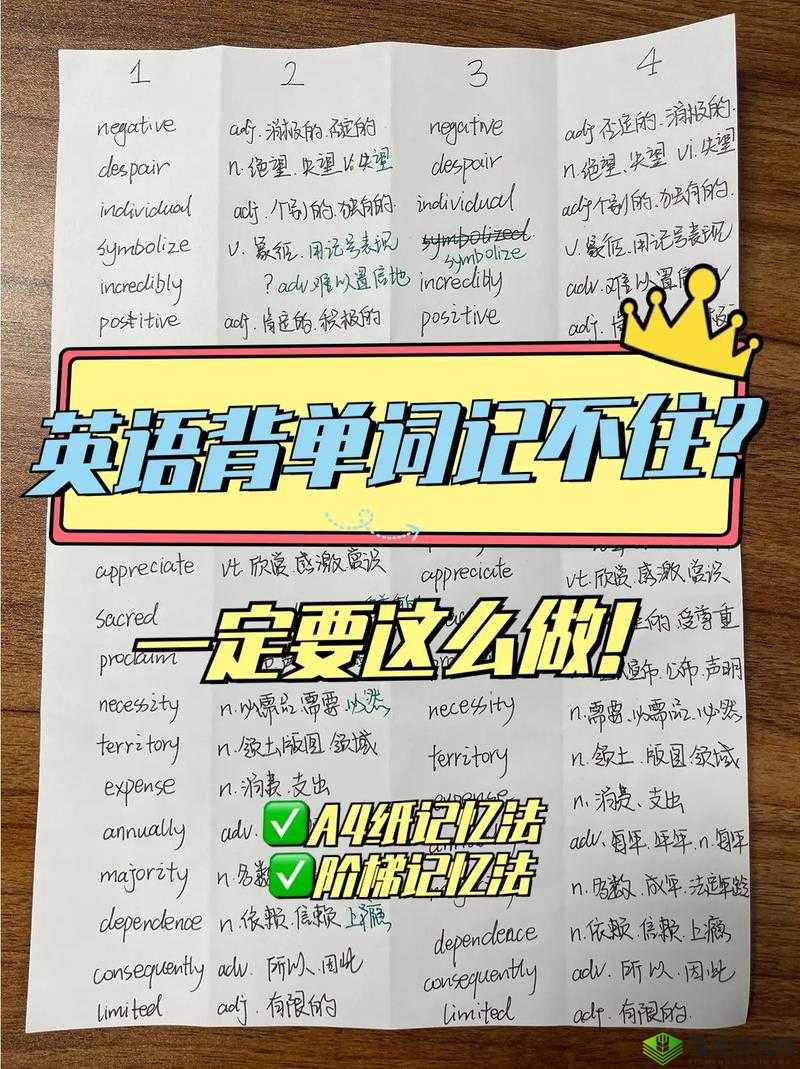 1 2 3 4
negative adj.消极的.否定的 negative adj否定的.消极的.
despair n.绝望.失望 vi.失望 despair n.绝望、失望 vi.失望
individual adj.个别的.独有的. individual adj个别的.独有的.
symbolize v.象征.用记号表现 symbolized v.象征.用记号表现
symbolize
incredibly ?adv.难以置信地 incredibly adv.难以置信
positive adj.肯定的.积极的 positive adj.
英语背单词记不住?
appreciate vt.欣赏.感激.赏识 appreciate vt.欣赏.感激.赏识
sacred 的.受尊重
一定要这么做!
proclaim 宣布.公布.声明
necessity n.必需品.需要.必然 necessity n.需要.必需品.必然
territory n.领土.版图.领域 territory n.领土.版图.领域
expense n.消费.支出 expense n.消费、支出
annually adv. adv.每年.年年.n.每年
✅A4纸记忆法
majority n.多数 n.多数.成年.法定年龄
✅阶梯记忆法
dependence n.依赖.信赖.上瘾 dependence n.依赖.信赖.上瘾
consequently adv.所以.因此 consequently adv.所以.因此
limited adj.有限的 limited adj.有限的.